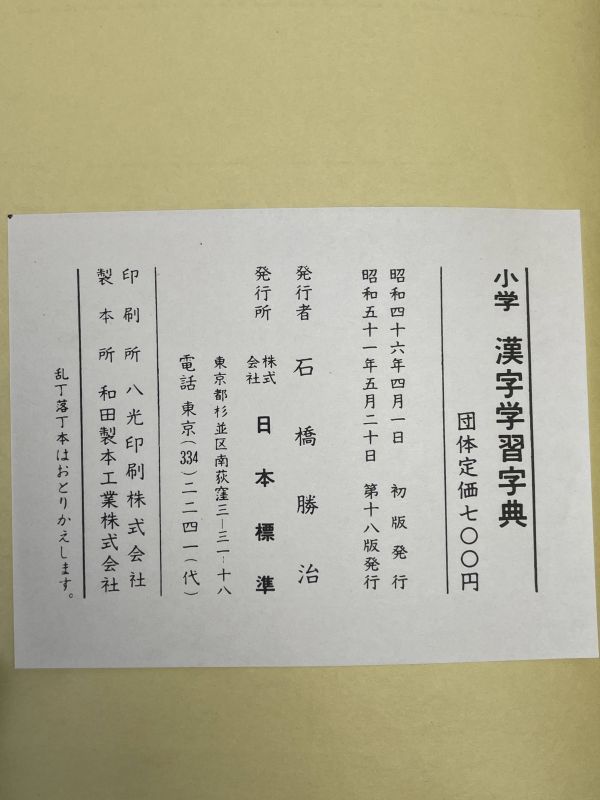 小学 漢字学習字典
団体定価七〇〇円
昭和四十六年四月一日 初版発行
昭和五十一年五月二十日 第十八版発行
発行者 石橋勝治
発行所 株式会社 日本標準
東京都杉並区南荻窪三―三一―十八
電話 東京(334)二二四一(代)
印刷所 八光印刷株式会社
製本所 和田製本工業株式会社
乱丁落丁本はおとりかえします。